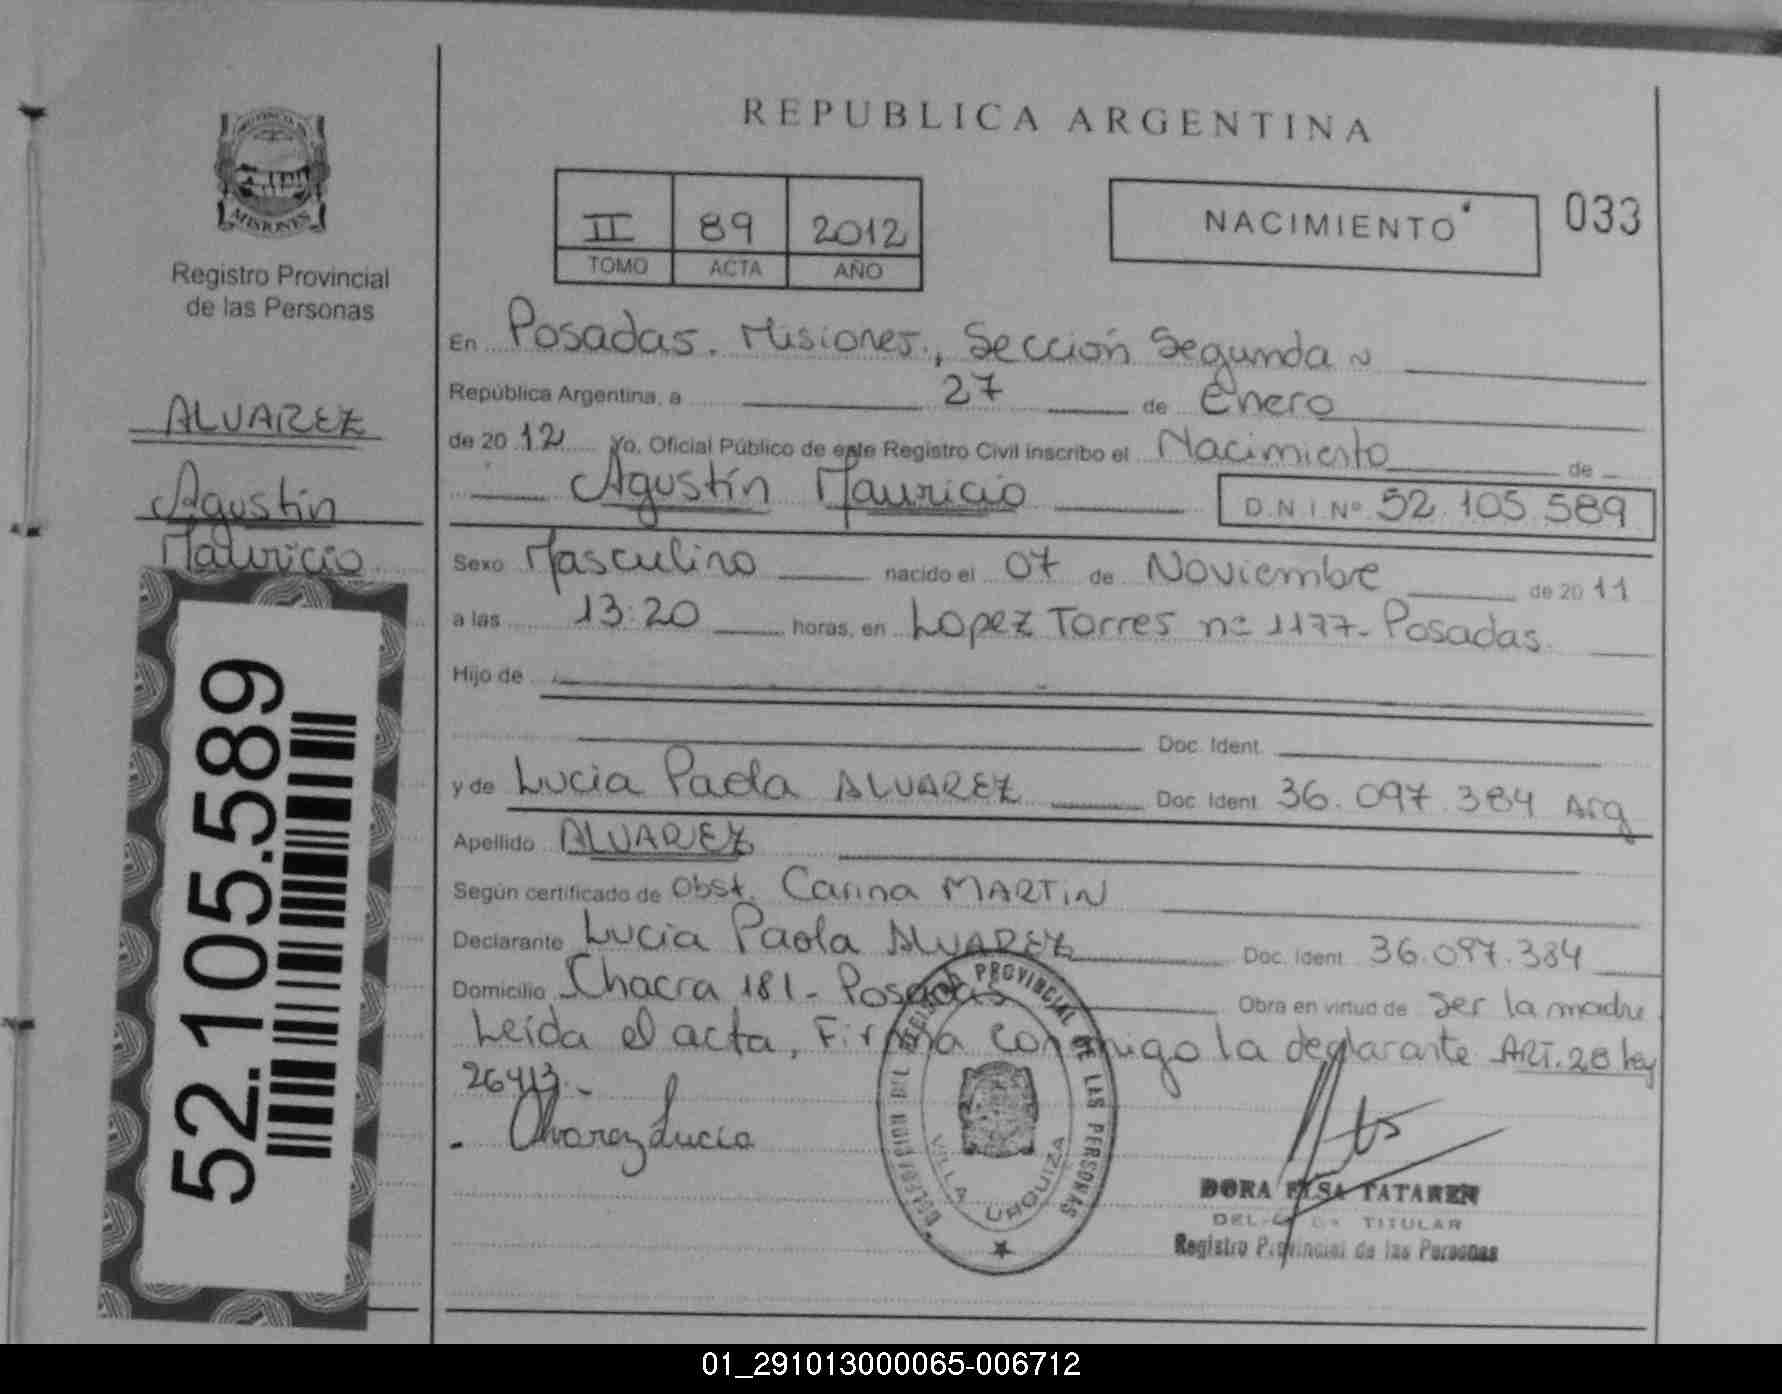 REPUBLICA ARGENTINA
PROVINCIA DE
MISIONES
Registro Provincial
de las Personas
II 89 2012
TOMO ACTA AÑO
NACIMIENTO
033
ALVAREZ
Agustín
Mauricio
52.105.589
En Posadas. Misiones, Sección Segunda
República Argentina, a 27 de Enero
de 2012 Yo, Oficial Público de este Registro Civil inscribo el Nacimiento de
Agustín Mauricio D.N.I.Nº 52.105.589
Sexo Masculino nacido el 07 de Noviembre de 2011
a las 13:20 horas, en Lopez Torres nº 1177- Posadas.
Hijo de
Doc. Ident.
y de Lucia Paola ALVAREZ Doc. Ident. 36.097.384 Arg
Apellido ALVAREZ
Según certificado de Obst. Carina MARTIN
Declarante Lucia Paola ALVAREZ Doc. Ident. 36.097.384
Domicilio Chacra 181- Posadas Obra en virtud de ser la madre
Leída el acta, Firma conmigo la declarante ART. 28 ley
26413.-
Alvarez Lucia
DELEGACION DEL REGISTRO PROVINCIAL DE LAS PERSONAS
VILLA URQUIZA
DORA ELSA TATAREN
TITULAR
Registro Provincial de las Personas
01_291013000065-006712